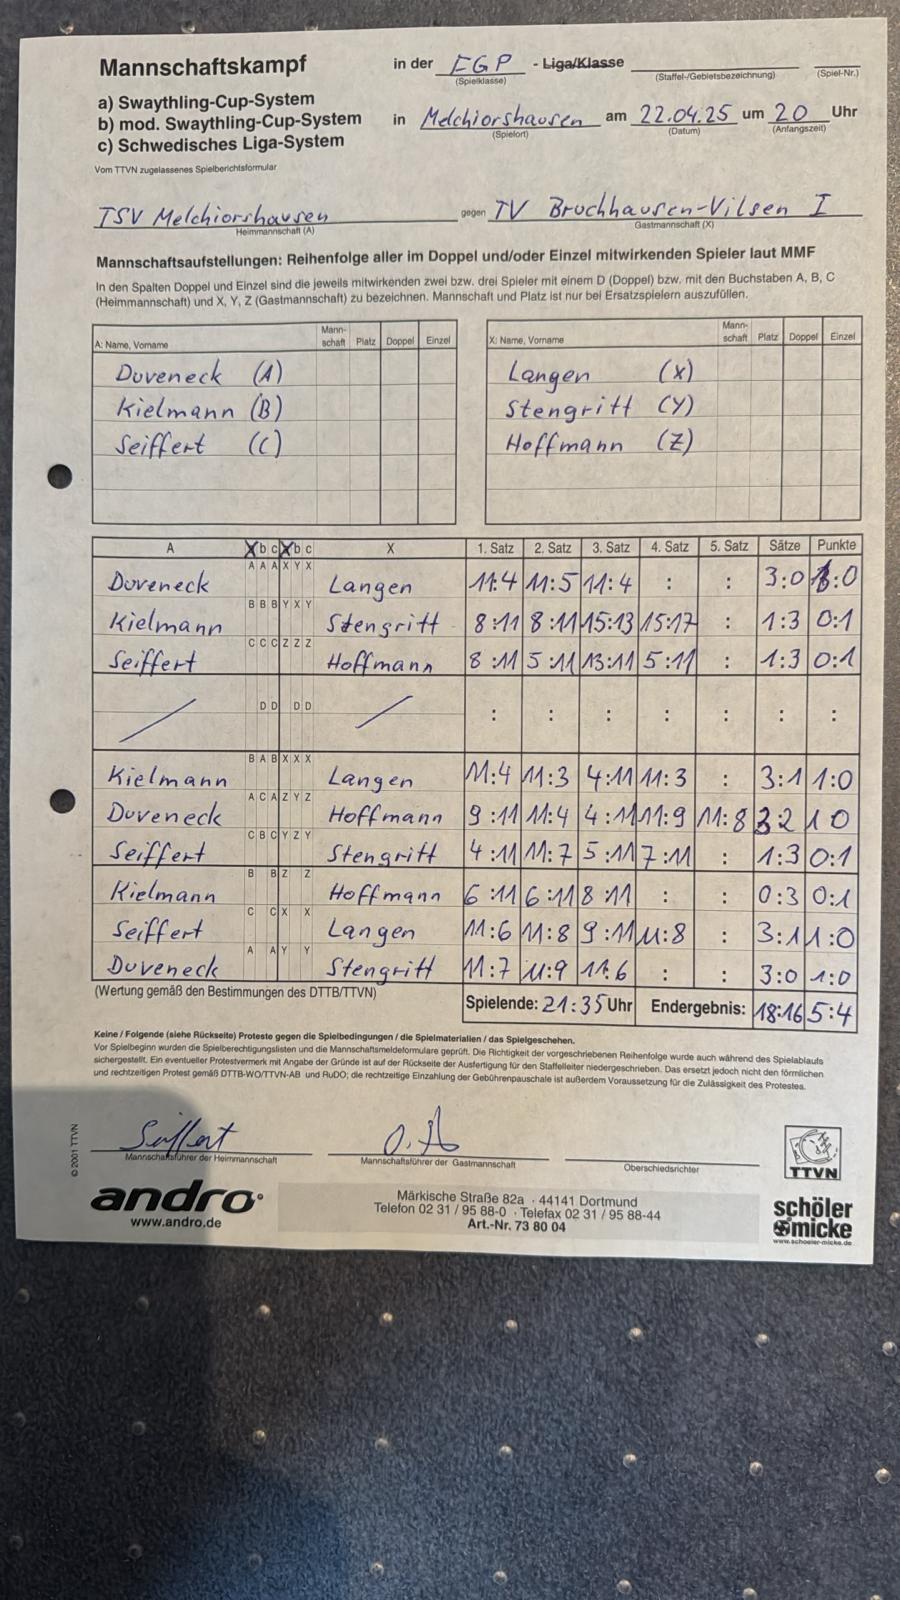 Mannschaftskampf
in der EGP - Liga/Klasse
(Spielklasse) (Staffel-/Gebietsbezeichnung) (Spiel-Nr.)
a) Swaythling-Cup-System
b) mod. Swaythling-Cup-System
c) Schwedisches Liga-System
in Melchiorshausen am 22.04.25 um 20 Uhr
(Spielort) (Datum) (Anfangszeit)
Vom TTVN zugelassenes Spielberichtsformular
TSV Melchiorshausen gegen TV Bruchhausen-Vilsen I
Heimmannschaft (A) Gastmannschaft (X)
Mannschaftsaufstellungen: Reihenfolge aller im Doppel und/oder Einzel mitwirkenden Spieler laut MMF
In den Spalten Doppel und Einzel sind die jeweils mitwirkenden zwei bzw. drei Spieler mit einem D (Doppel) bzw. mit den Buchstaben A, B, C
(Heimmannschaft) und X, Y, Z (Gastmannschaft) zu bezeichnen. Mannschaft und Platz ist nur bei Ersatzspielern auszufüllen.
A: Name, Vorname Mann-schaft Platz Doppel Einzel X: Name, Vorname Mann-schaft Platz Doppel Einzel
Duveneck (A) Langen (X)
Kielmann (B) Stengritt (Y)
Seiffert (C) Hoffmann (Z)
A X b c X b c X 1. Satz 2. Satz 3. Satz 4. Satz 5. Satz Sätze Punkte
Duveneck A A A X Y X Langen 11:4 11:5 11:4 : : 3:0 1:0
Kielmann B B B Y X Y Stengritt 8:11 8:11 15:13 15:17 : 1:3 0:1
Seiffert C C C Z Z Z Hoffmann 8:11 5:11 13:11 5:11 : 1:3 0:1
D D D D : : : : : : :
Kielmann B A B X X X Langen 11:4 11:3 4:11 11:3 : 3:1 1:0
Duveneck A C A Z Y Z Hoffmann 9:11 11:4 4:11 11:9 11:8 3:2 1 0
Seiffert C B C Y Z Y Stengritt 4:11 11:7 5:11 7:11 : 1:3 0:1
Kielmann B B Z Z Hoffmann 6:11 6:11 8 11 : : 0:3 0:1
Seiffert C C X X Langen 11:6 11:8 9:11 11:8 : 3:1 1:0
Duveneck A A Y Y Stengritt 11:7 11:9 11:6 : : 3:0 1:0
(Wertung gemäß den Bestimmungen des DTTB/TTVN) Spielende: 21:35 Uhr Endergebnis: 18:16 5:4
Keine / Folgende (siehe Rückseite) Proteste gegen die Spielbedingungen / die Spielmaterialien / das Spielgeschehen.
Vor Spielbeginn wurden die Spielberechtigungslisten und die Mannschaftsmeldeformulare geprüft. Die Richtigkeit der vorgeschriebenen Reihenfolge wurde auch während des Spielablaufs
sichergestellt. Ein eventueller Protestvermerk mit Angabe der Gründe ist auf der Rückseite der Ausfertigung für den Staffelleiter niedergeschrieben. Das ersetzt jedoch nicht den förmlichen
und rechtzeitigen Protest gemäß DTTB-WO/TTVN-AB und RuDO; die rechtzeitige Einzahlung der Gebührenpauschale ist außerdem Voraussetzung für die Zulässigkeit des Protestes.
Seiffert
Mannschaftsführer der Heimmannschaft Mannschaftsführer der Gastmannschaft Oberschiedsrichter
© 2001 TTVN
TTVN
andro
www.andro.de
Märkische Straße 82a · 44141 Dortmund
Telefon 02 31 / 95 88-0 · Telefax 02 31 / 95 88-44
Art.-Nr. 73 80 04
schöler
micke
www.schoeler-micke.de